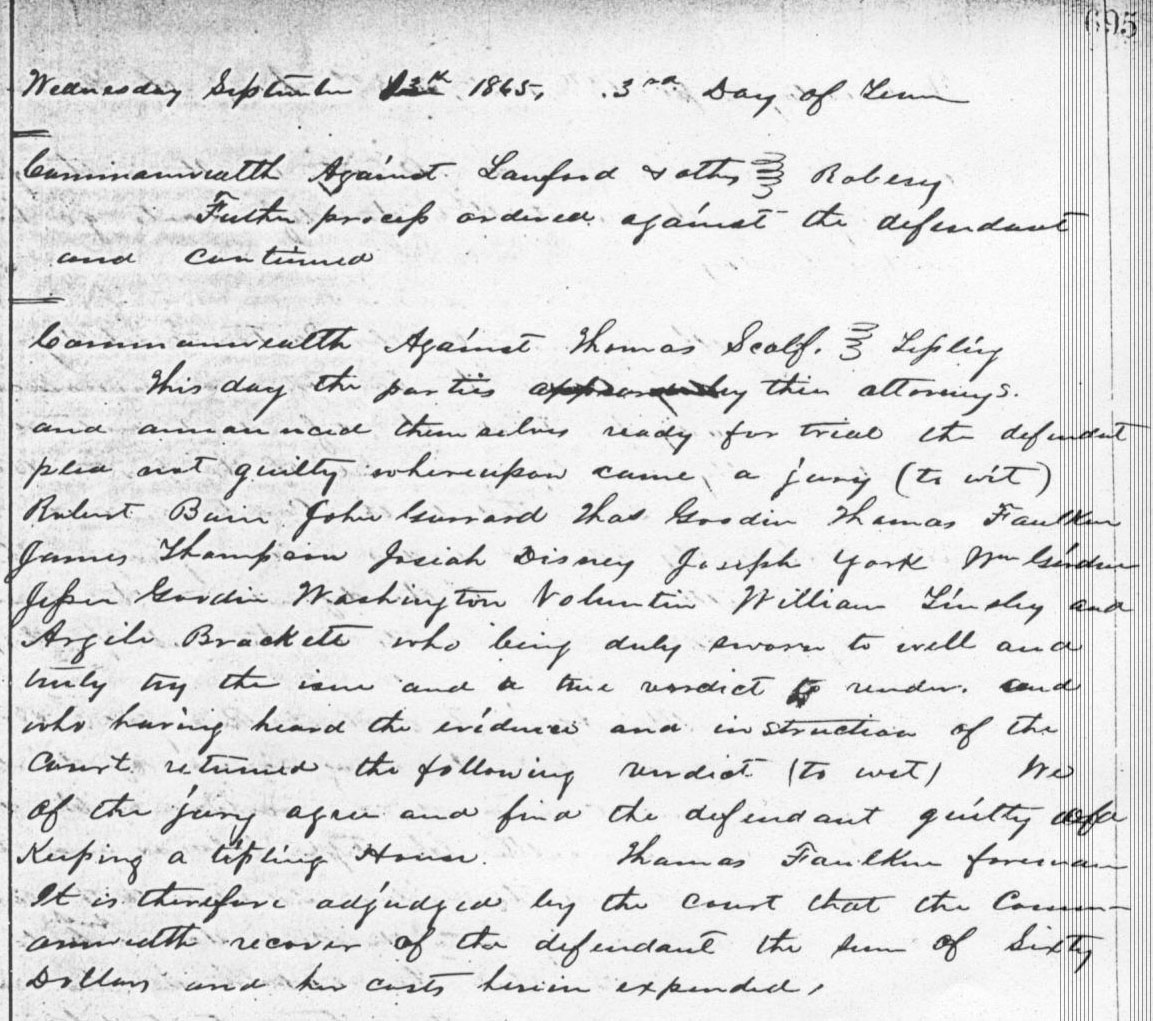 695
Wednesday September 13th 1865, 3rd Day of Term
Commonwealth Against Lanford & others Robery
Futher process ordered against the defendant
and continued
Commonwealth Against Thomas Scalf. Tipling
This day the parties by their attorneys.
and announced themselves ready for trial the defendant
plea not guilty whereupon came a jury (to wit)
Robert Bain John Garrard Thos Goodin Thomas Faulkner
James Thompson Josiah Disney Joseph York Wm Goodin
Jesse Goodin Washington Voluntin William Linsley and
Argile Brackett who being duly sworn to well and
truly try the issue and a true verdict to render. and
who having heard the evidence and instruction of the
Court returned the following verdict (to wit) We
of the jury agree and find the defendant guilty of
Keeping a tipling House. Thomas Faulkner foreman
It is therefore adjudged by the court that the Comm-
onwealth recover of the defendant the sum of Sixty
Dollars and her costs herein expended,